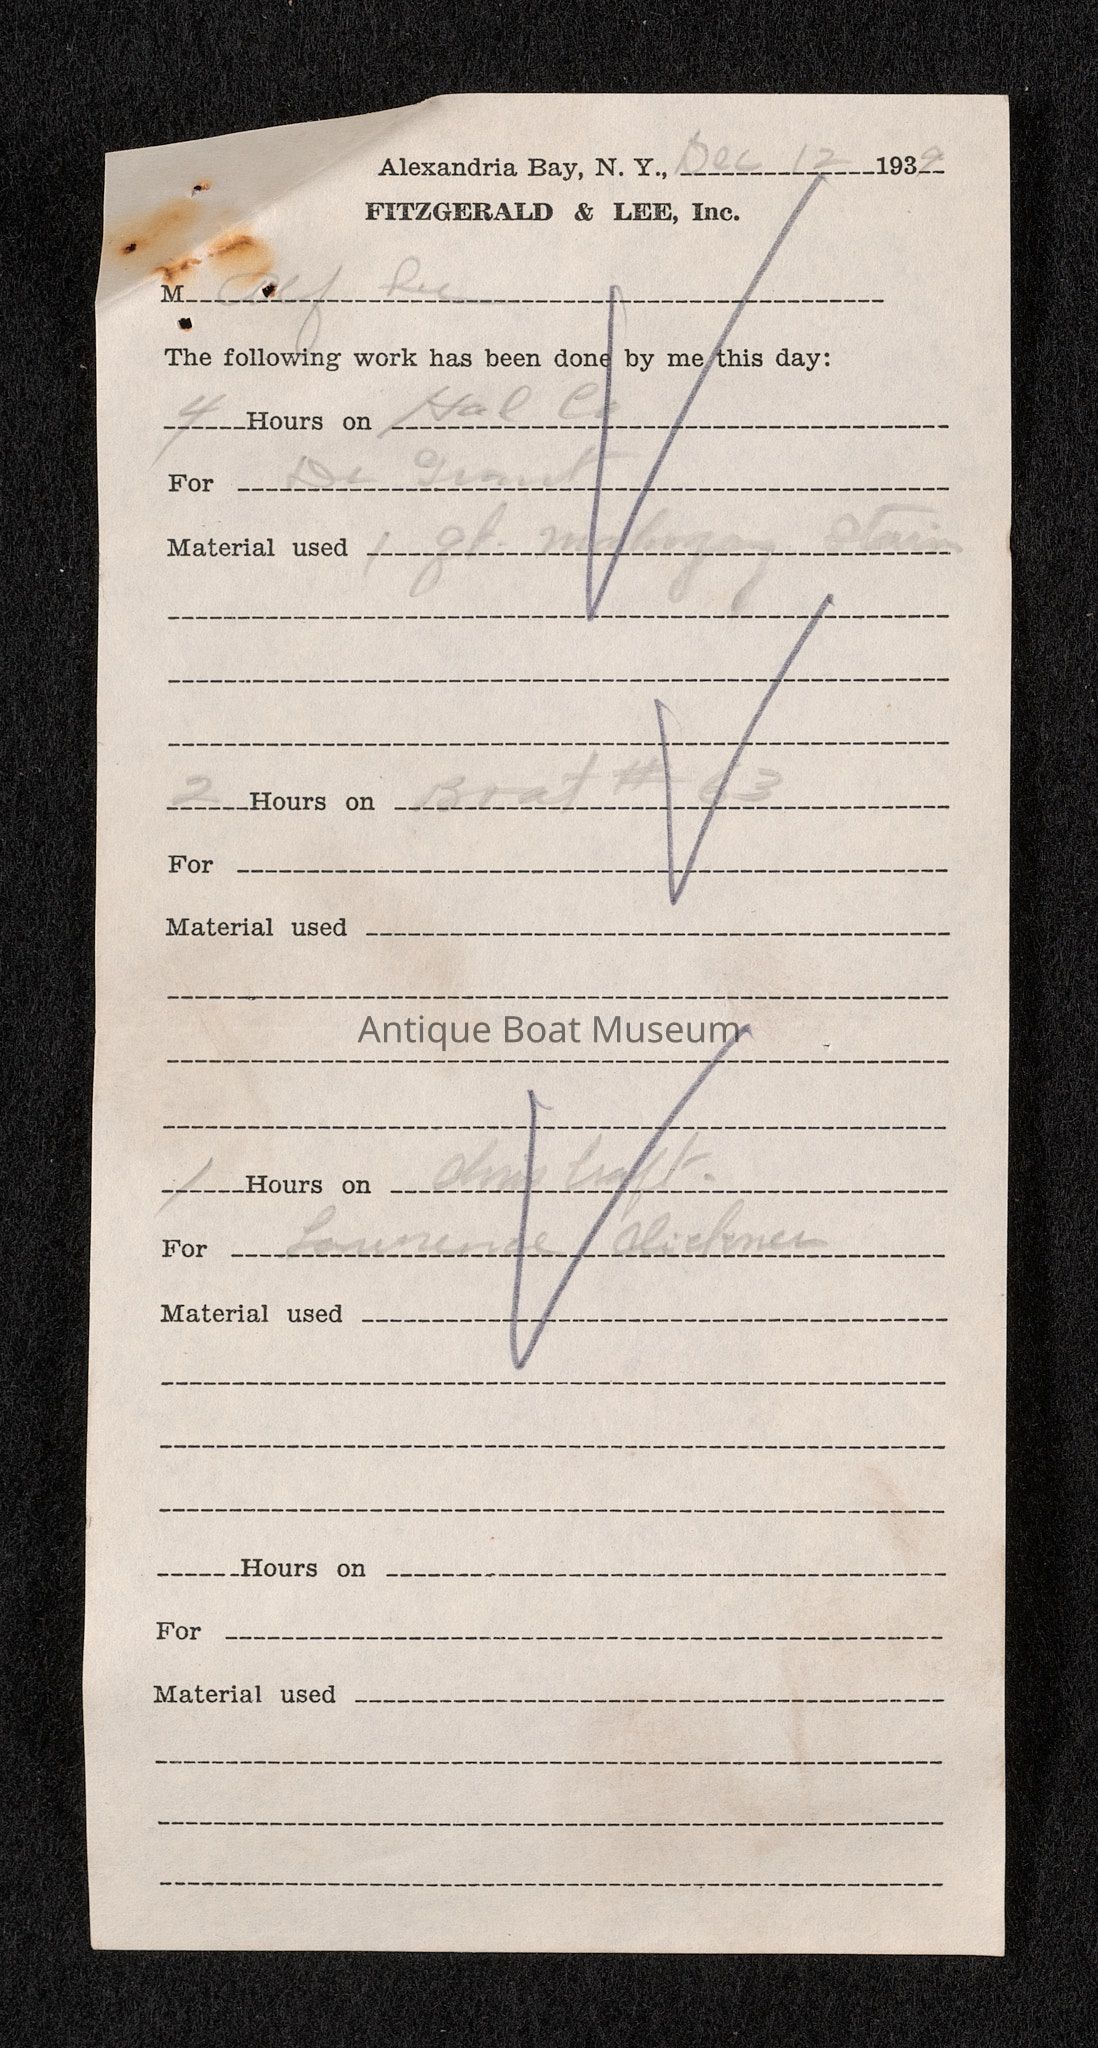 Alexandria Bay, N. Y., Dec 12 1939
FITZGERALD & LEE, Inc.
M Alf Lee
The following work has been done by me this day:
4 Hours on Hal Co
For Dr Grant
Material used 1 qt. mahogany Stain
2 Hours on Boat # 63
For
Material used
Antique Boat Museum
1 Hours on Chris Craft.
For Lawrence
Material used
Hours on
For
Material used